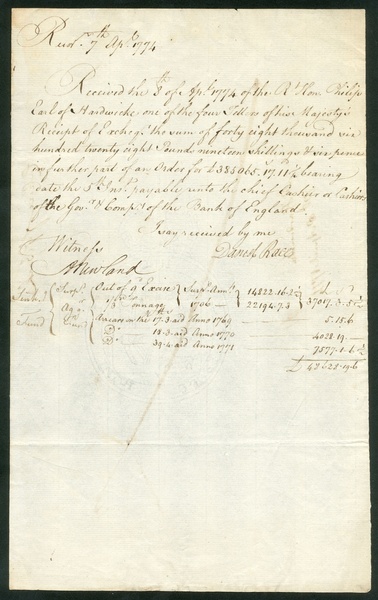 Recd. 7th Apl. 1774
Received the 8 of Apl. 1774 of the Rt. Hon. Philip
Earl of Hardwicke one of the four Tellers of his Majestys
Receipt of Excheqr. the sum of forty eight thousand six
hundred twenty eight Pounds nineteen shillings & six pence
in further part of an Order for £ 355065.17.11½ bearing
date the 5th Inst. payable unto the chief Cashier or Cashiers
of the Govr. & Compy. of the Bank of England
I say received by me
Witness
Daniel Race
A Newland
Out of 9d Excise
14822.16.2
Tonnage 1706 — 22194.7.3
37017.3.5½
Fund
Arrears on the 17th. 3 aid Anno 1769 — 5.15.6
Do. 18.3 aid Anno 1770 — 4028.19.—
Do. 39.4 aid Anno 1771 — 7577.1.6½
£ 48628.19.6